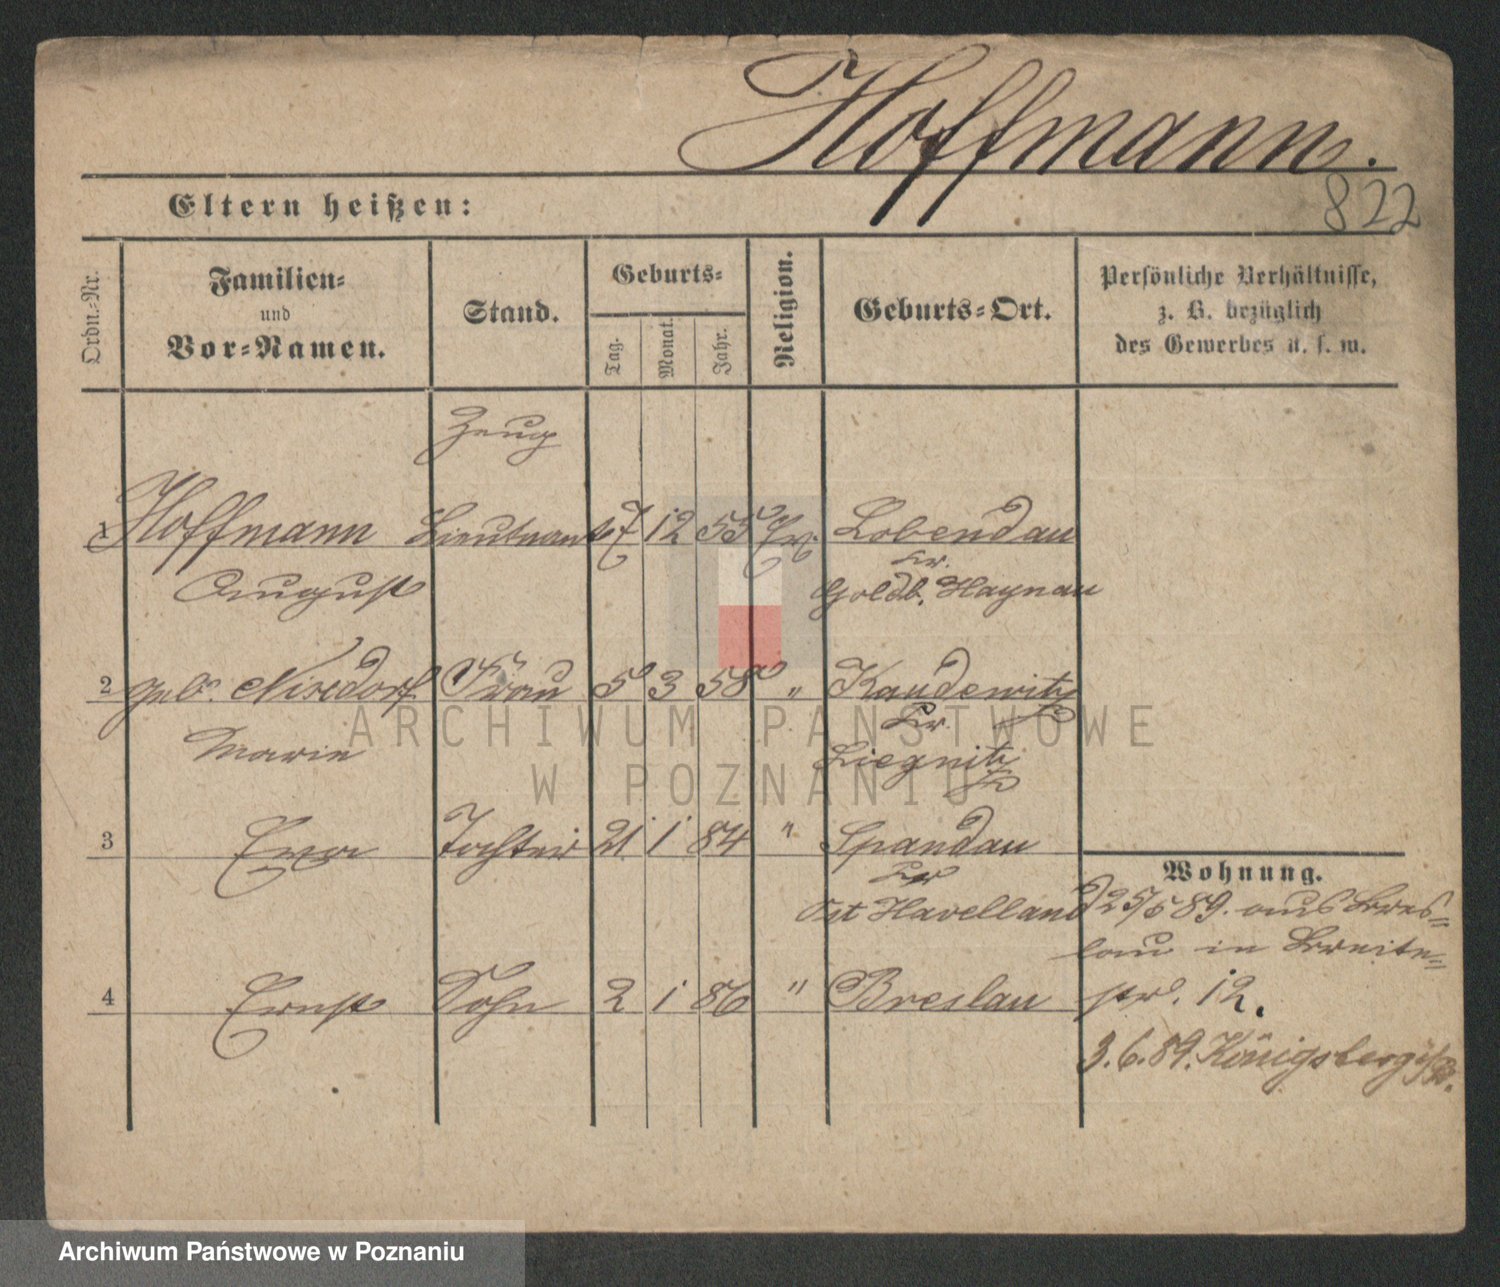 Hoffmann.
822
Eltern heißen:
Ordn.-Nr.
Familien-
und
Vor-Namen.
Stand.
Geburts-
Tag.
Monat.
Jahr.
Religion.
Geburts-Ort.
Persönliche Verhältnisse,
z. B. bezüglich
des Gewerbes u. s. w.
Zeug
1 Hoffmann Lieutnant 17 12 55 Ev. Lobendau
Kr.
August Goldb. Haynau
2 geb. Frau 5 3 58 " Kaudewitz
Kr.
Marie Liegnitz
3 Tochter 21 1 84 " Spandau
Kr
Ost Havelland
4 Ernst Sohn 2 1 86 " Breslau
Wohnung.
25/5 89. aus Bres=
lau in Breite=
str. 12.
3.6.89. Königsberg i/Pr.
ARCHIWUM PAŃSTWOWE
W POZNANIU
Archiwum Państwowe w Poznaniu